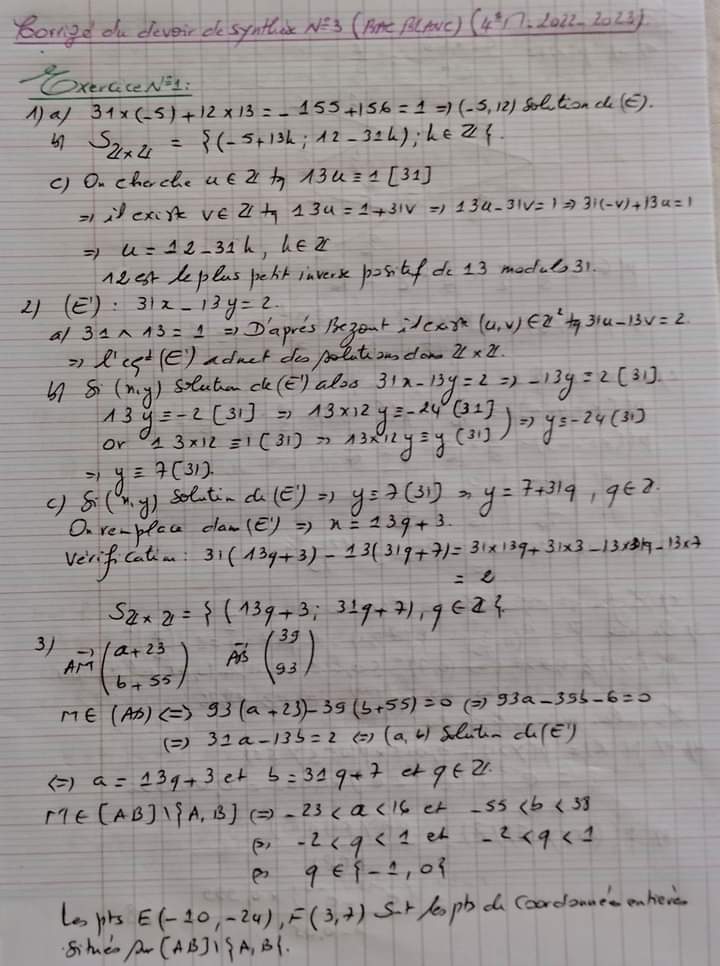 Corrigé du devoir de synthèse N°3 (BAC BLANC) (4°M. 2022-2023).
Exercice N°1:
1) a) 31×(-5)+12×13 = -155+156 = 1 ⇒ (-5,12) solution de (E).
b) S_{ℤ×ℤ} = {(-5+13k ; 12-31k) ; k ∈ ℤ}.
c) On cherche u ∈ ℤ tq 13u ≡ 1 [31]
⇒ il existe v ∈ ℤ tq 13u = 1+31v ⇒ 13u-31v=1 ⇒ 31(-v)+13u=1
⇒ u = 12-31k, k ∈ ℤ
12 est le plus petit inverse positif de 13 modulo 31.
2) (E') : 31x - 13y = 2.
a) 31 ∧ 13 = 1 ⇒ D'aprés Bezout il existe (u,v) ∈ ℤ² tq 31u-13v = 2
⇒ l'eqt (E') admet des solutions dans ℤ×ℤ.
b) Si (x,y) solution de (E') alors 31x-13y=2 ⇒ -13y ≡ 2 [31].
13y ≡ -2 [31] ⇒ 13×12y ≡ -24 [31]
or 13×12 ≡ 1 [31] ⇒ 13×12y ≡ y [31] ) ⇒ y ≡ -24 [31]
⇒ y ≡ 7 [31].
c) Si (x,y) solution de (E') ⇒ y ≡ 7 [31] ⇒ y = 7+31q, q ∈ ℤ.
On remplace dans (E') ⇒ x = 13q+3.
Vérification : 31(13q+3) - 13(31q+7) = 31×13q+31×3-13×31q-13×7
= 2
S_{ℤ×ℤ} = {(13q+3 ; 31q+7), q ∈ ℤ}.
3) AM→ (a+23 ; b+55) AB→ (39 ; 93)
M ∈ (AB) ⇔ 93(a+23)-39(b+55)=0 ⇔ 93a-39b-6=0
⇔ 31a-13b=2 ⇔ (a,b) solution de (E')
⇔ a = 13q+3 et b = 31q+7 et q ∈ ℤ.
M ∈ [AB]\{A,B} ⇔ -23 < a < 16 et -55 < b < 38
⇔ -2 < q < 1 et -2 < q < 1
⇔ q ∈ {-1, 0}
Les pts E(-10,-24), F(3,7) sont les pts de coordonnées entières
situés sur [AB]\{A,B}.